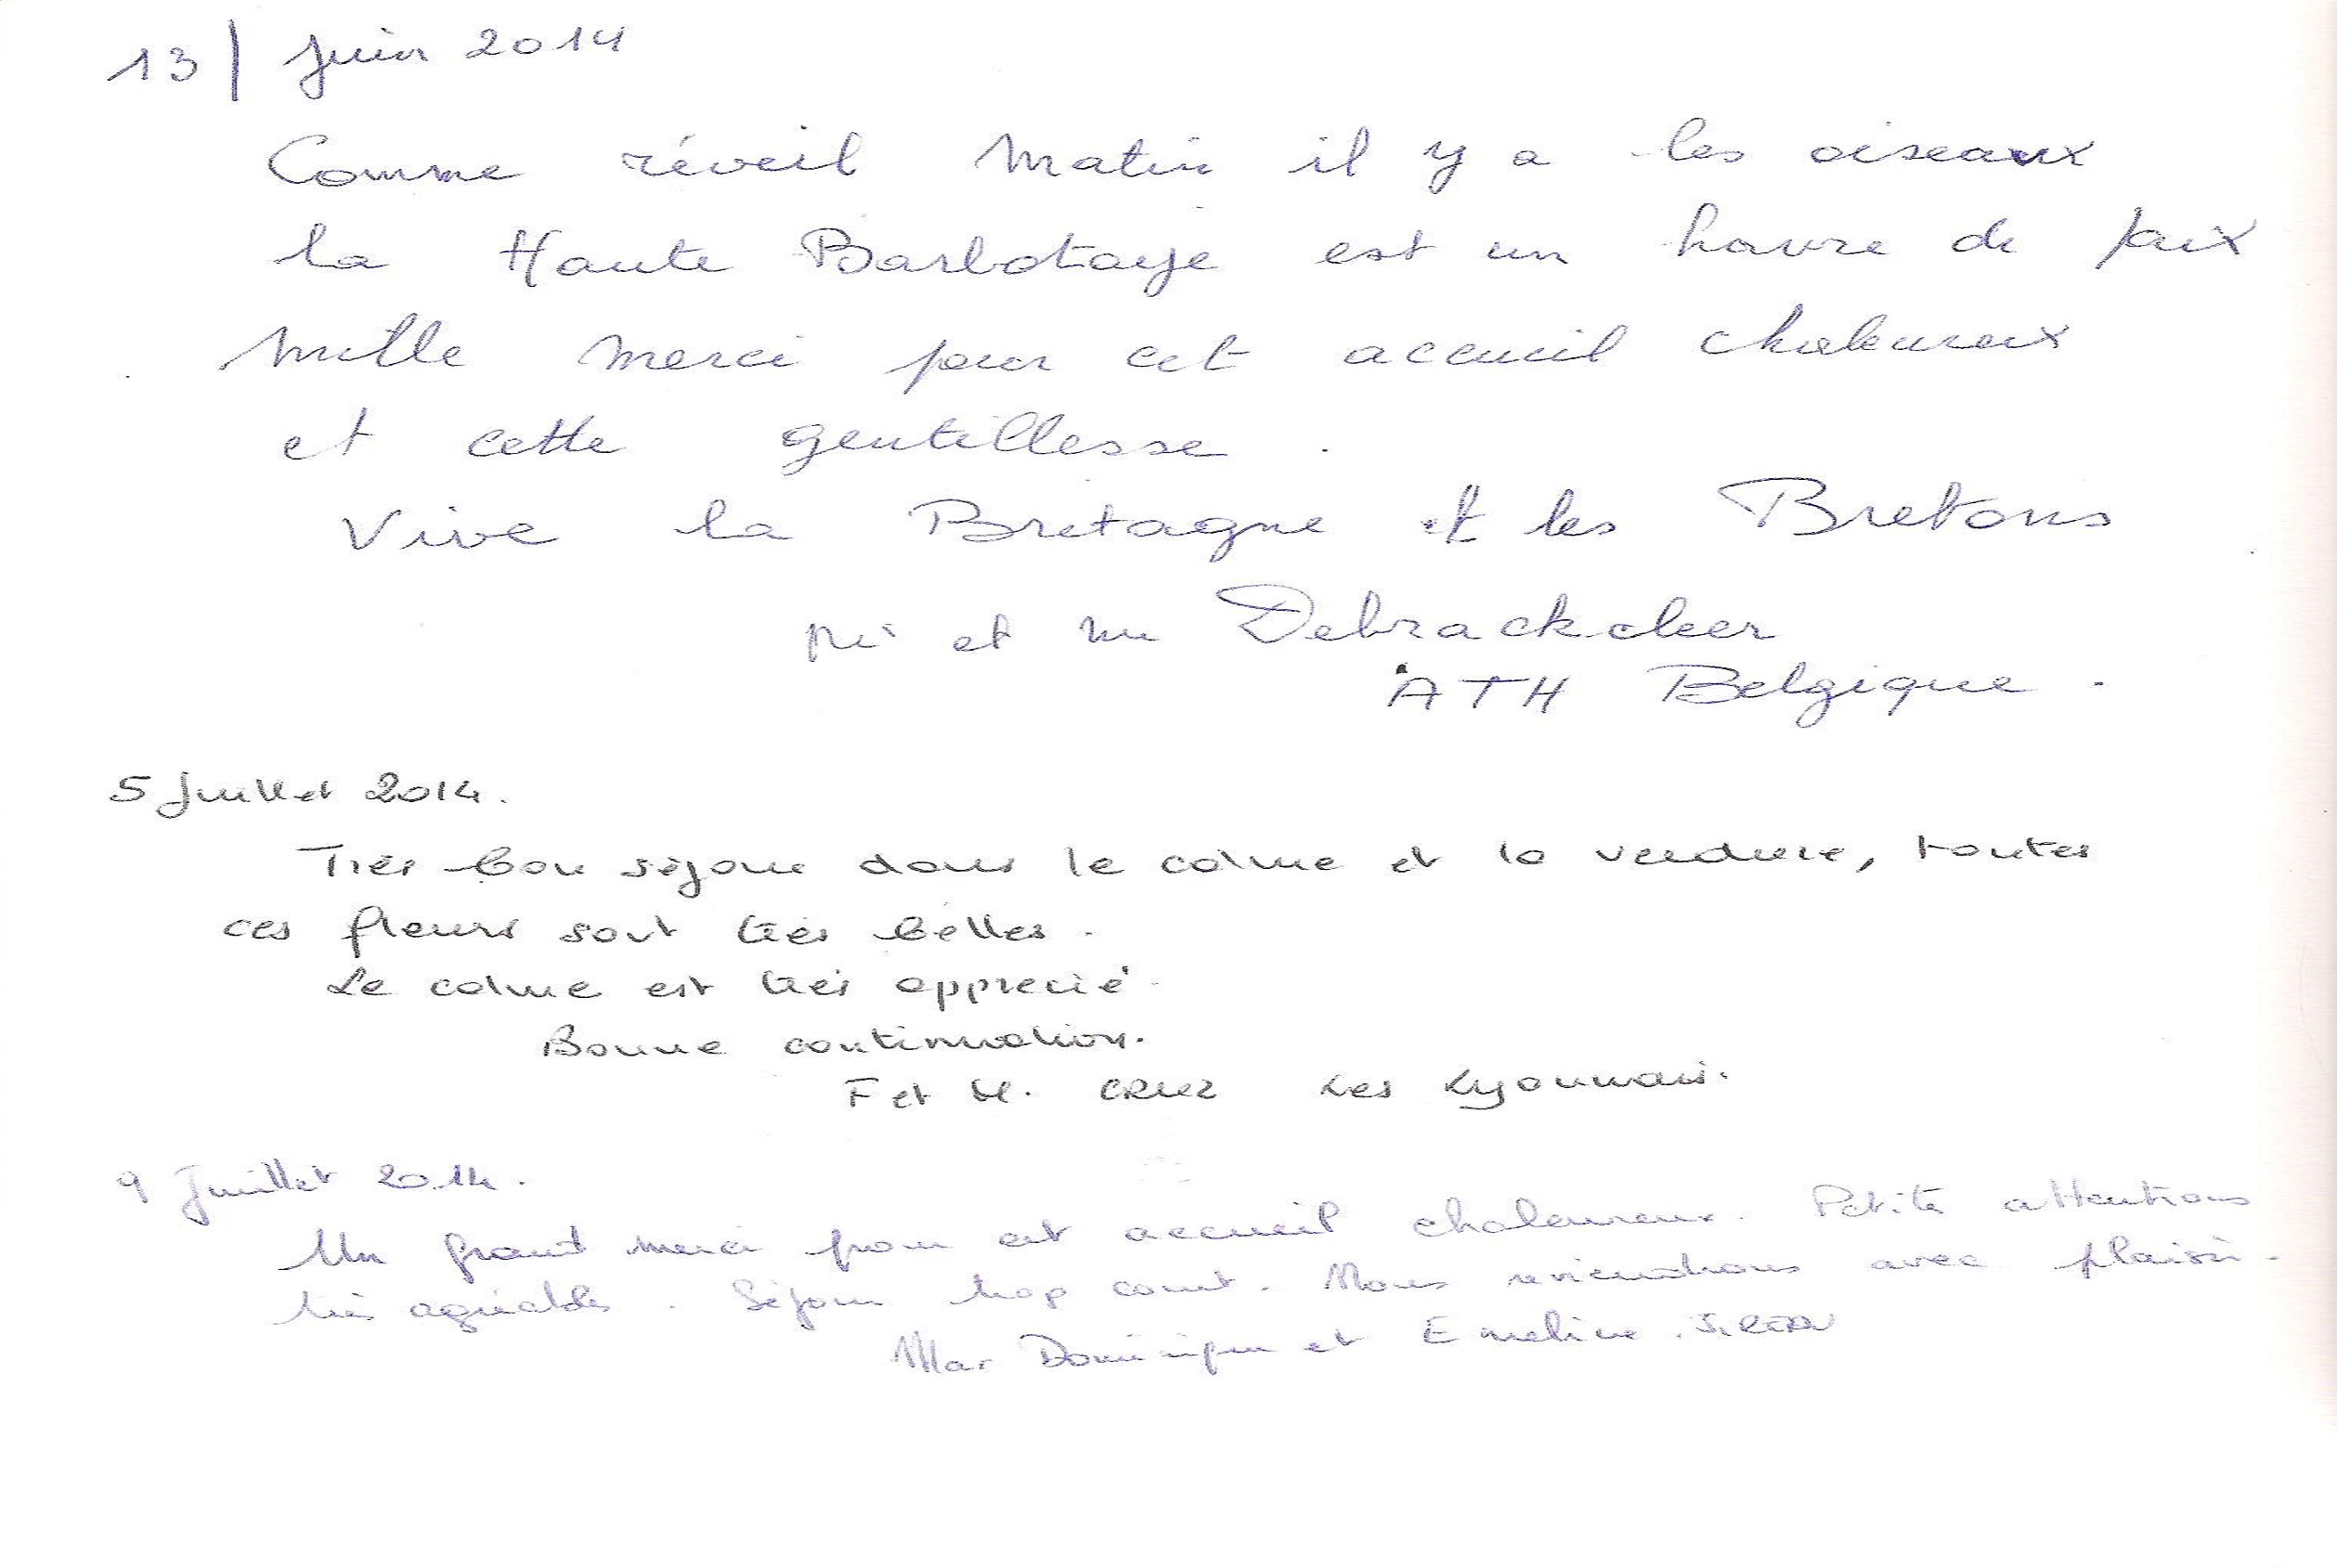 13/ Juin 2014
Comme réveil matin il y a les oiseaux
la Haute Barbotaye est un havre de paix
mille merci pour cet accueil chaleureux
et cette gentillesse.
Vive la Bretagne et les Bretons
et Debrackeleer
ATH Belgique.
5 Juillet 2014.
Très bon séjour dans le calme et la verdure, toutes
ces fleurs sont très belles.
Le calme est très apprecié.
Bonne continuation.
F et M. CRUZ Les Lyonnais.
9 Juillet 2014.
Un grand merci pour cet accueil chaleureux. Petite attentions
très agréables. Séjour trop court. Nous reviendrons avec plaisir.
Dominique et Emeline